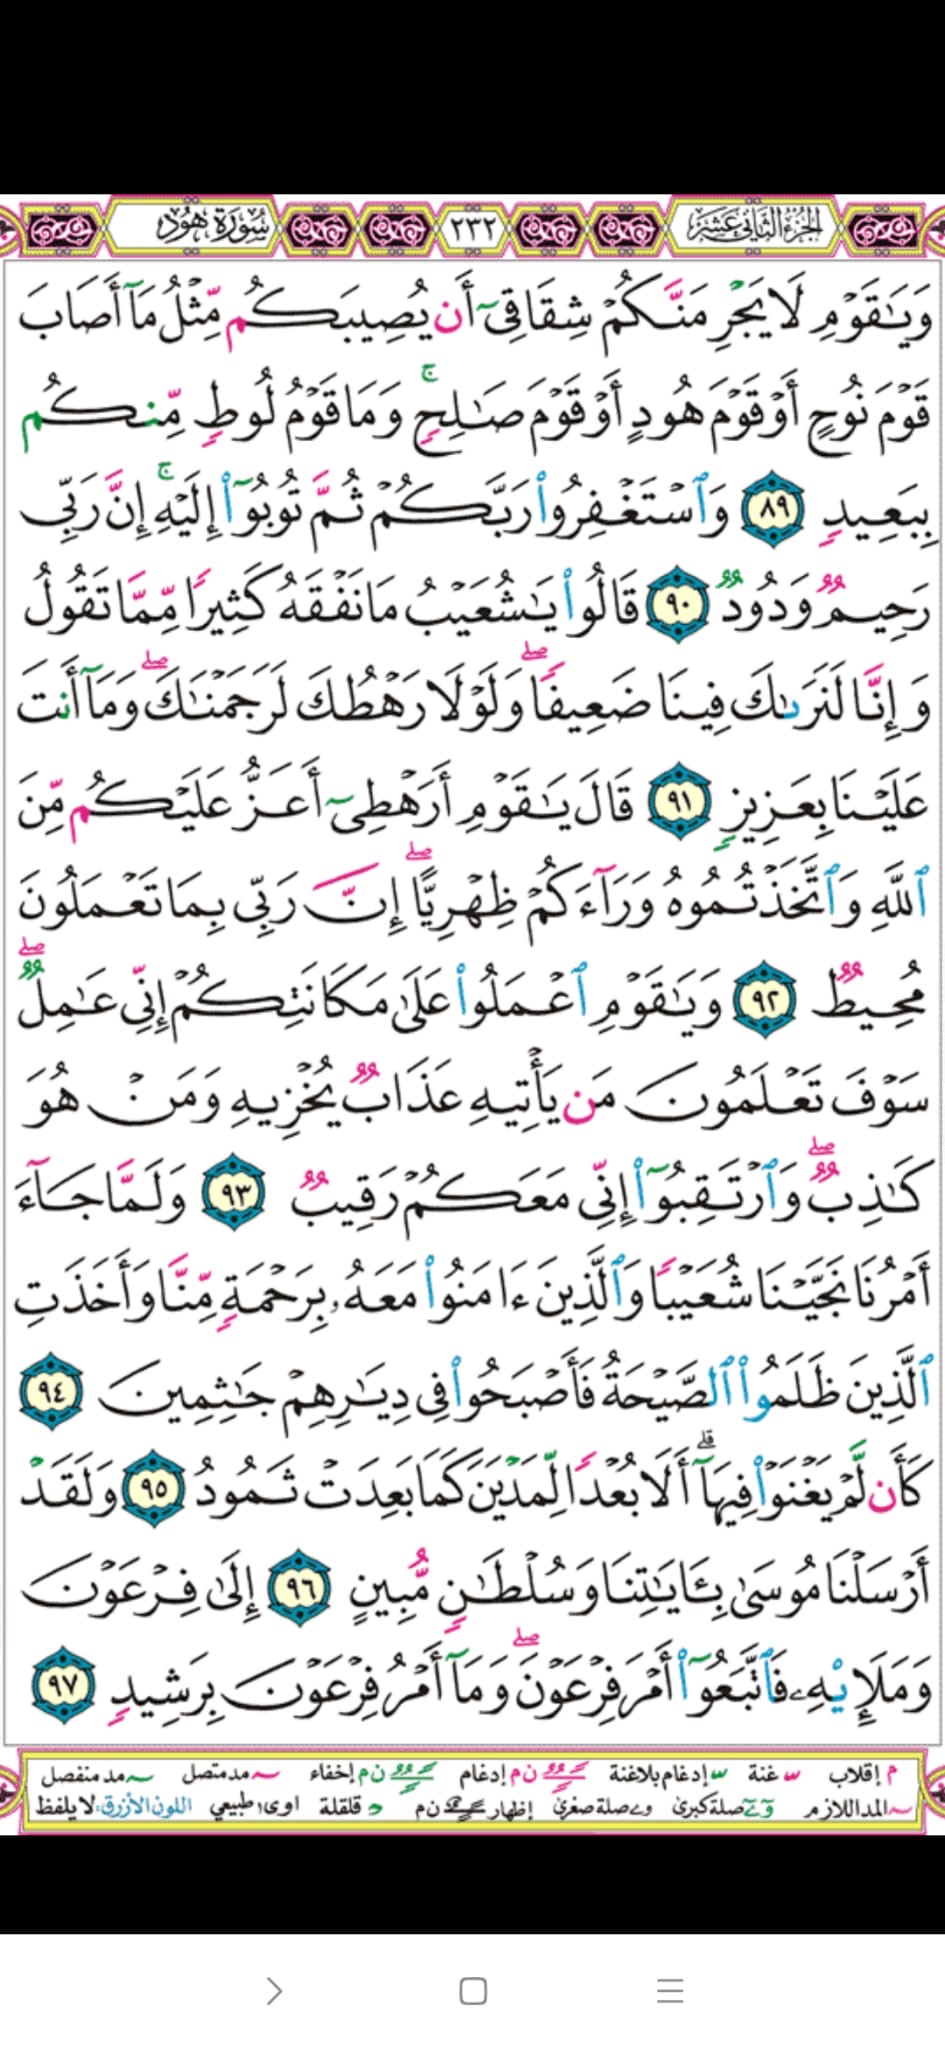 الجزء الثاني عشر
٢٣٢
سورة هود
وَيَٰقَوۡمِ لَا يَجۡرِمَنَّكُمۡ شِقَاقِيٓ أَن يُصِيبَكُم مِّثۡلُ مَآ أَصَابَ
قَوۡمَ نُوحٍ أَوۡ قَوۡمَ هُودٍ أَوۡ قَوۡمَ صَٰلِحٖۚ وَمَا قَوۡمُ لُوطٖ مِّنكُم
بِبَعِيدٖ ٨٩ وَٱسۡتَغۡفِرُواْ رَبَّكُمۡ ثُمَّ تُوبُوٓاْ إِلَيۡهِۚ إِنَّ رَبِّي
رَحِيمٞ وَدُودٞ ٩٠ قَالُواْ يَٰشُعَيۡبُ مَا نَفۡقَهُ كَثِيرٗا مِّمَّا تَقُولُ
وَإِنَّا لَنَرَىٰكَ فِينَا ضَعِيفٗاۖ وَلَوۡلَا رَهۡطُكَ لَرَجَمۡنَٰكَۖ وَمَآ أَنتَ
عَلَيۡنَا بِعَزِيزٖ ٩١ قَالَ يَٰقَوۡمِ أَرَهۡطِيٓ أَعَزُّ عَلَيۡكُم مِّنَ
ٱللَّهِ وَٱتَّخَذۡتُمُوهُ وَرَآءَكُمۡ ظِهۡرِيًّاۖ إِنَّ رَبِّي بِمَا تَعۡمَلُونَ
مُحِيطٞ ٩٢ وَيَٰقَوۡمِ ٱعۡمَلُواْ عَلَىٰ مَكَانَتِكُمۡ إِنِّي عَٰمِلٞۖ
سَوۡفَ تَعۡلَمُونَ مَن يَأۡتِيهِ عَذَابٞ يُخۡزِيهِ وَمَنۡ هُوَ
كَٰذِبٞۖ وَٱرۡتَقِبُوٓاْ إِنِّي مَعَكُمۡ رَقِيبٞ ٩٣ وَلَمَّا جَآءَ
أَمۡرُنَا نَجَّيۡنَا شُعَيۡبٗا وَٱلَّذِينَ ءَامَنُواْ مَعَهُۥ بِرَحۡمَةٖ مِّنَّا وَأَخَذَتِ
ٱلَّذِينَ ظَلَمُواْ ٱلصَّيۡحَةُ فَأَصۡبَحُواْ فِي دِيَٰرِهِمۡ جَٰثِمِينَ ٩٤
كَأَن لَّمۡ يَغۡنَوۡاْ فِيهَآۗ أَلَا بُعۡدٗا لِّمَدۡيَنَ كَمَا بَعِدَتۡ ثَمُودُ ٩٥ وَلَقَدۡ
أَرۡسَلۡنَا مُوسَىٰ بِـَٔايَٰتِنَا وَسُلۡطَٰنٖ مُّبِينٍ ٩٦ إِلَىٰ فِرۡعَوۡنَ
وَمَلَإِيْهِۦ فَٱتَّبَعُوٓاْ أَمۡرَ فِرۡعَوۡنَۖ وَمَآ أَمۡرُ فِرۡعَوۡنَ بِرَشِيدٖ ٩٧
م إقلاب غنة إدغام بلاغنة ن م إدغام ن م إخفاء مد متصل مد منفصل
المد اللازم صلة كبرى و ے صلة صغرى إظهار ن م قلقلة ا و ى طبيعي اللون الأزرق: لا يلفظ